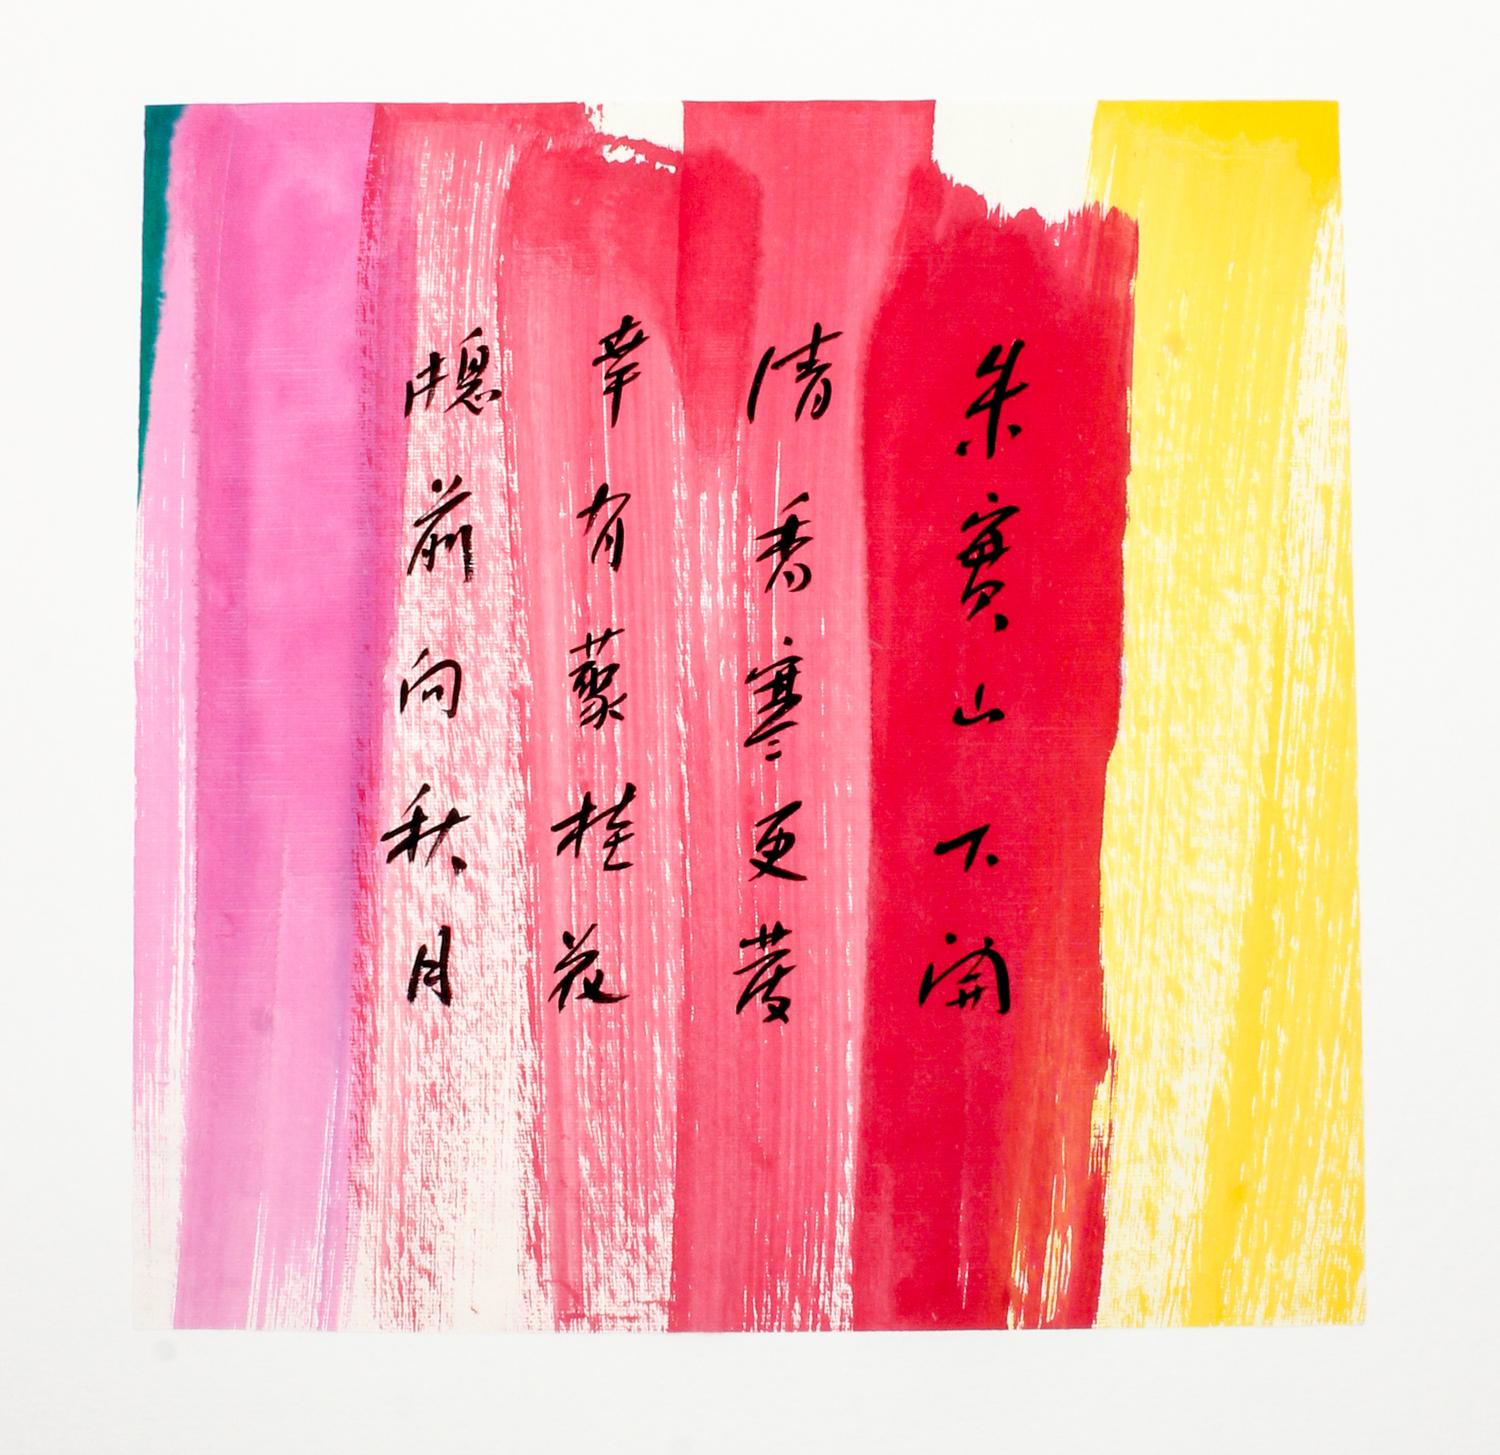 朱實山下開
清香寒更發
幸有藂桂花
牕前向秋月